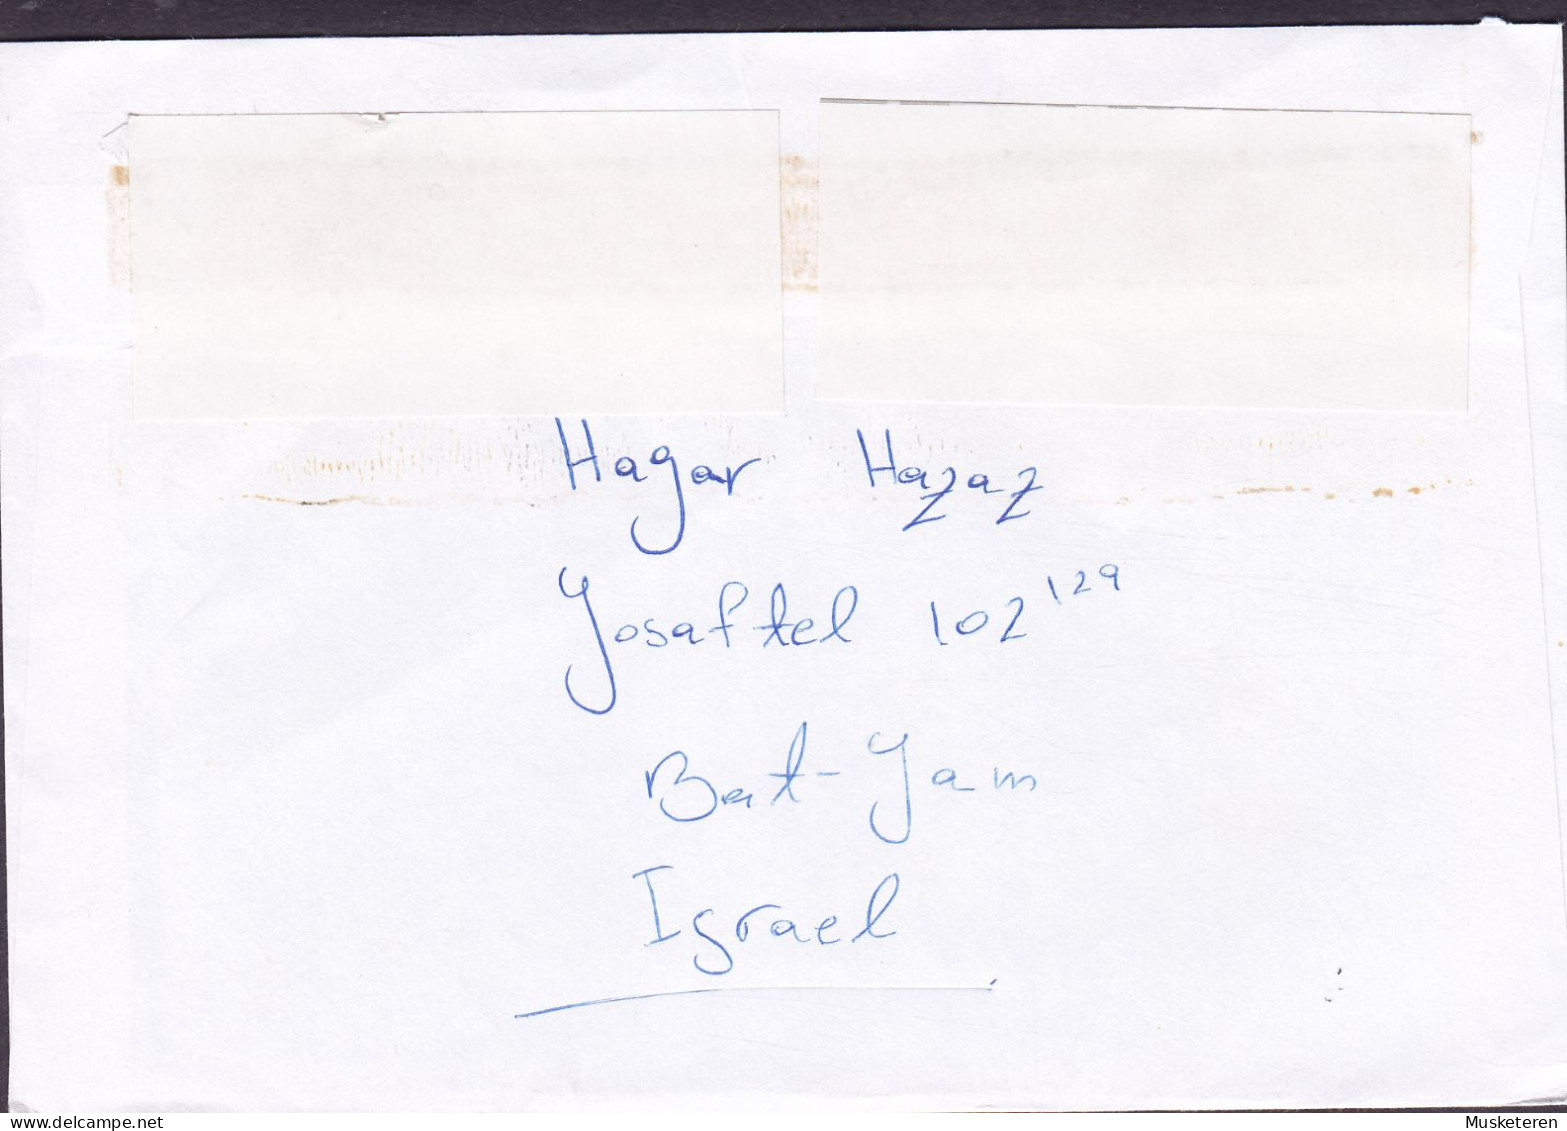 Hagar Hazaz
Yosaftel 102 129
Bat-Yam
Israel
www.delcampe.net
Musketeren